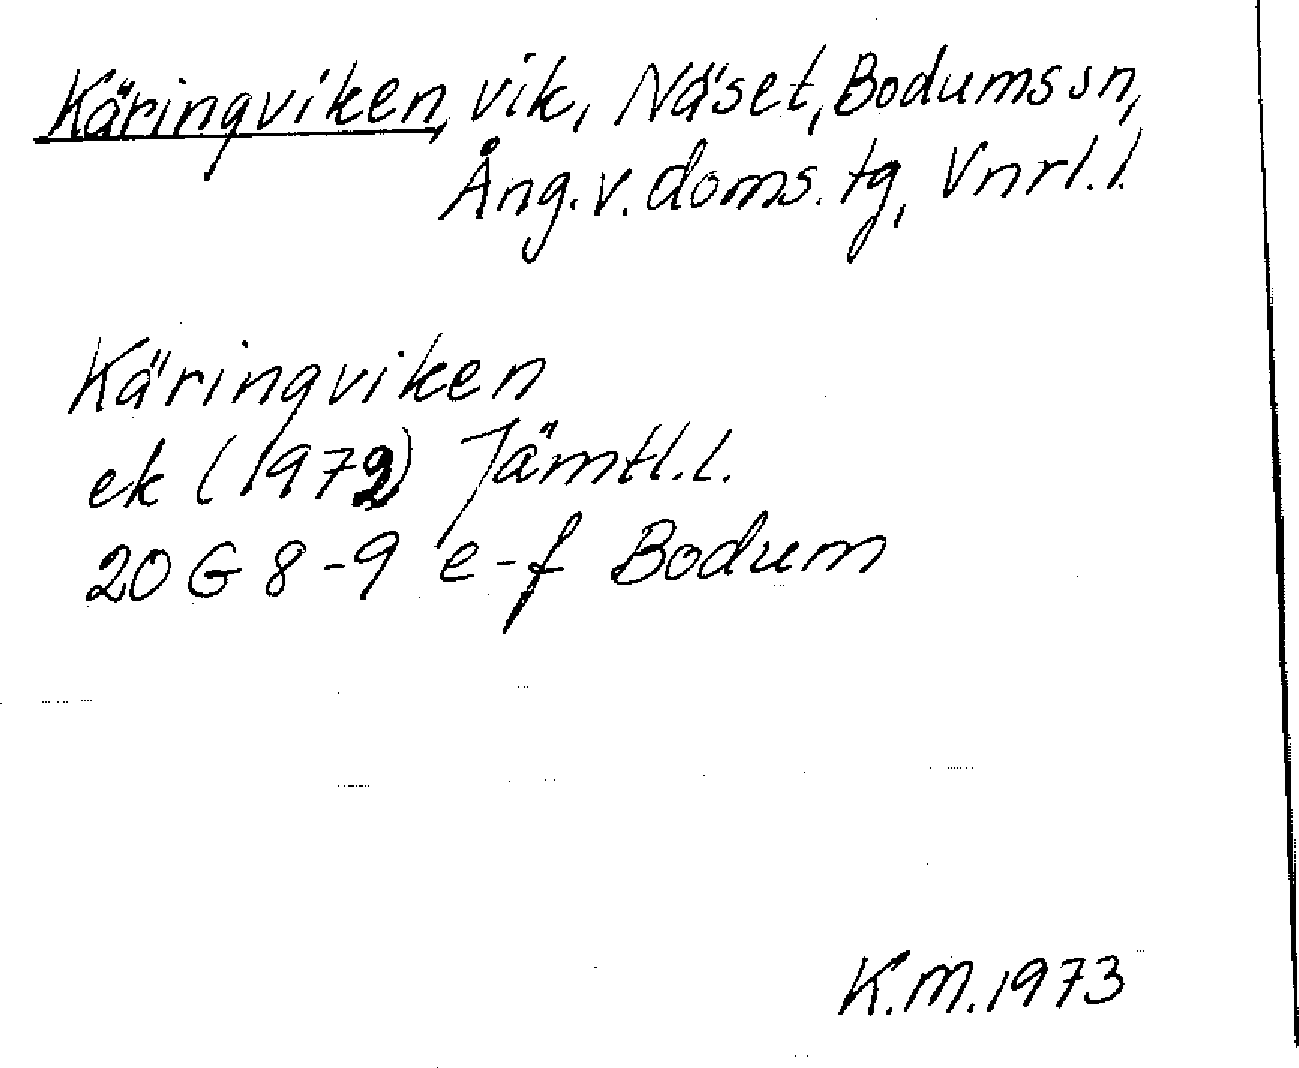 Käringviken, vik, Näset, Bodums sn,
Ång. v. doms. tg, Vnrl. l.
Käringviken
ek (1972) Jämtl. l.
20 G 8-9 e-f Bodum
K. M. 1973